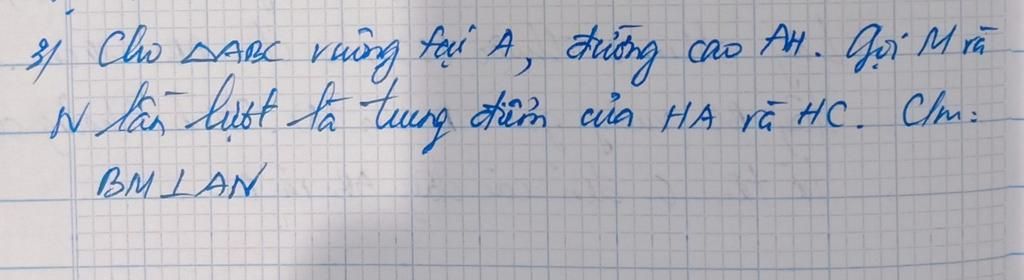 3/ Cho △ABC vuông tại A, đường cao AH. Gọi M và
N lần lượt là trung điểm của HA và HC. C/m:
BM⊥AN